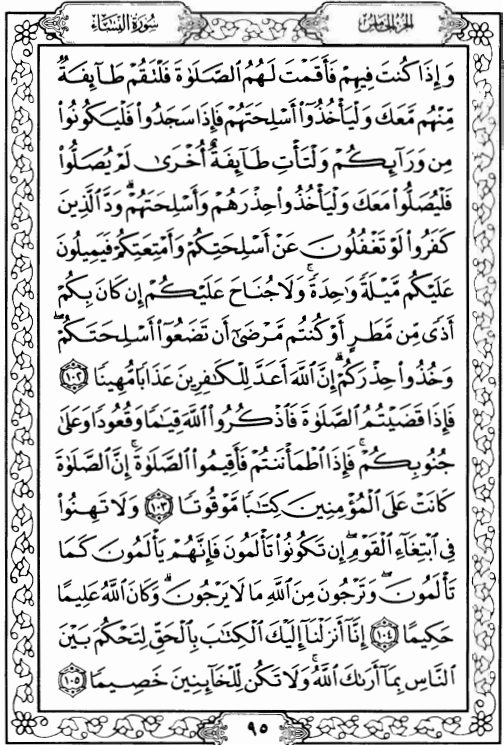 سُورَةُ النِّسَاءِ
الجزء الخامس
وَإِذَا كُنتَ فِيهِمْ فَأَقَمْتَ لَهُمُ الصَّلَوٰةَ فَلْتَقُمْ طَآئِفَةٌ
مِّنْهُم مَّعَكَ وَلْيَأْخُذُوٓا۟ أَسْلِحَتَهُمْ فَإِذَا سَجَدُوا۟ فَلْيَكُونُوا۟
مِن وَرَآئِكُمْ وَلْتَأْتِ طَآئِفَةٌ أُخْرَىٰ لَمْ يُصَلُّوا۟
فَلْيُصَلُّوا۟ مَعَكَ وَلْيَأْخُذُوا۟ حِذْرَهُمْ وَأَسْلِحَتَهُمْ ۗ وَدَّ الَّذِينَ
كَفَرُوا۟ لَوْ تَغْفُلُونَ عَنْ أَسْلِحَتِكُمْ وَأَمْتِعَتِكُمْ فَيَمِيلُونَ
عَلَيْكُم مَّيْلَةً وَٰحِدَةً ۚ وَلَا جُنَاحَ عَلَيْكُمْ إِن كَانَ بِكُمْ
أَذًى مِّن مَّطَرٍ أَوْ كُنتُم مَّرْضَىٰٓ أَن تَضَعُوٓا۟ أَسْلِحَتَكُمْ ۖ
وَخُذُوا۟ حِذْرَكُمْ ۗ إِنَّ اللَّهَ أَعَدَّ لِلْكَٰفِرِينَ عَذَابًا مُّهِينًا ١٠٢
فَإِذَا قَضَيْتُمُ الصَّلَوٰةَ فَاذْكُرُوا۟ اللَّهَ قِيَٰمًا وَقُعُودًا وَعَلَىٰ
جُنُوبِكُمْ ۚ فَإِذَا اطْمَأْنَنتُمْ فَأَقِيمُوا۟ الصَّلَوٰةَ ۚ إِنَّ الصَّلَوٰةَ
كَانَتْ عَلَى الْمُؤْمِنِينَ كِتَٰبًا مَّوْقُوتًا ١٠٣ وَلَا تَهِنُوا۟
فِي ابْتِغَآءِ الْقَوْمِ ۖ إِن تَكُونُوا۟ تَأْلَمُونَ فَإِنَّهُمْ يَأْلَمُونَ كَمَا
تَأْلَمُونَ ۖ وَتَرْجُونَ مِنَ اللَّهِ مَا لَا يَرْجُونَ ۗ وَكَانَ اللَّهُ عَلِيمًا
حَكِيمًا ١٠٤ إِنَّآ أَنزَلْنَآ إِلَيْكَ الْكِتَٰبَ بِالْحَقِّ لِتَحْكُمَ بَيْنَ
النَّاسِ بِمَآ أَرَىٰكَ اللَّهُ ۚ وَلَا تَكُن لِّلْخَآئِنِينَ خَصِيمًا ١٠٥
٩٥